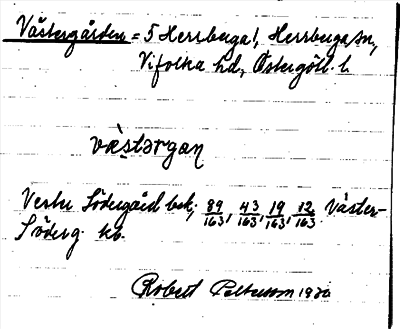 Västergården = 5 Herrberga!, Herrberga sn,
Vifolka hd, Östergötl. l.
væ̀stərgan
Södergård bek, 89/163, 43/163, 19/163, 12/163 Väster-
Söderg.
Robert Pettersson 1930